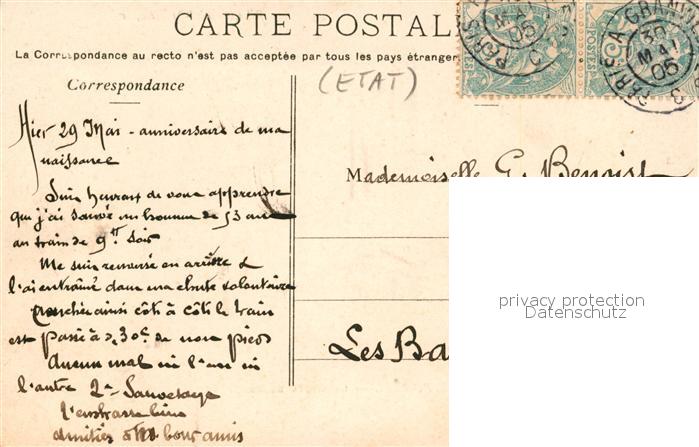 CARTE POSTALE
La Correspondance au recto n'est pas acceptée par tous les pays étrangers
(ETAT)
Correspondance
Hier 29 Mai - anniversaire de ma
naissance
Suis heureux de vous apprendre
que j'ai sauvé un homme de 53 ans
au train de 9h soir
Me suis ramassé en arrière &
l'ai entraîné dans ma chute volontaire
Couchés ainsi côte à côte le train
est passé à 0,30c. de nos pieds
Aucun mal ni l'un ni
l'autre 2e Sauvetage
J'embrasse bien
amitiés à
Mademoiselle G. Benoist
Les Ba
PARIS
MAI
05
POSTES
PARIS
30
MAI
05
privacy protection
Datenschutz